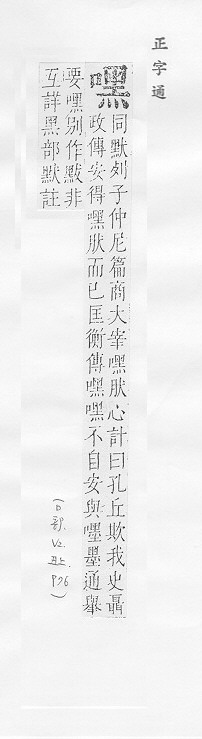 正字通
嘿
同默列子仲尼篇商大宰嘿肰心計曰孔丘欺我史聶
政傳安得嘿肰而已匡衡傳嘿嘿不自安與嚜墨通舉
要嘿別作黙非
互詳黑部默註
(口部. V2. 丑上. P76)